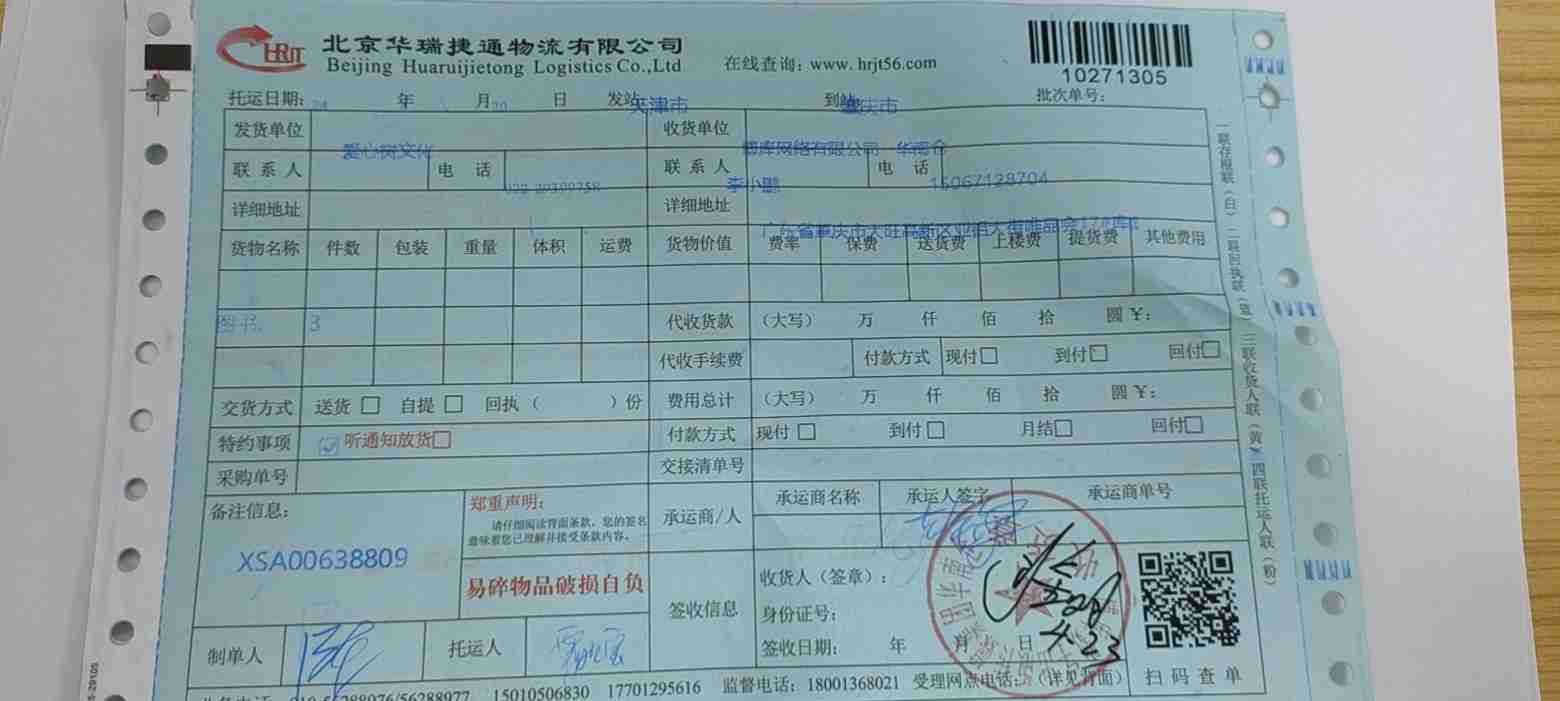 HRJT 北京华瑞捷通物流有限公司
Beijing Huaruijietong Logistics Co.,Ltd 在线查询：www. hrjt56.com
10271305
托运日期：24 年 月20 日 发站 天津市 到站 肇庆市 批次单号：
发货单位 爱心树文化 收货单位 网络有限公司 华南仓
联系人 电话 022-29399758 联系人 李小鹏 电话 15067128704
详细地址 详细地址 广东省肇庆市大旺高新区
货物名称 件数 包装 重量 体积 运费 货物价值 费率 保费 送货费 上楼费 提货费 其他费用
图书 3 代收货款 （大写） 万 仟 佰 拾 圆￥：
代收手续费 付款方式 现付□ 到付□ 回付□
交货方式 送货 □ 自提 □ 回执（ ）份 费用总计 （大写） 万 仟 佰 拾 圆￥：
特约事项 ☑ 听通知放货□ 付款方式 现付 □ 到付□ 月结□ 回付□
采购单号 交接清单号
备注信息：
XSA00638809
郑重声明：
请仔细阅读背面条款，您的签名
意味着您已理解并接受条款内容。
易碎物品破损自负
承运商/人 承运商名称 承运人签字 承运商单号
签收信息 收货人（签章）：
身份证号：
签收日期： 年 月 日
4.23
扫码查单
制单人 托运人
业务电话 010-56288976/56288977 15010506830 17701295616 监督电话：18001368021 受理网点电话：（详见背面）
一联存根联（白）二联回执联（蓝）三联收货人联（黄）四联托运人联（粉）